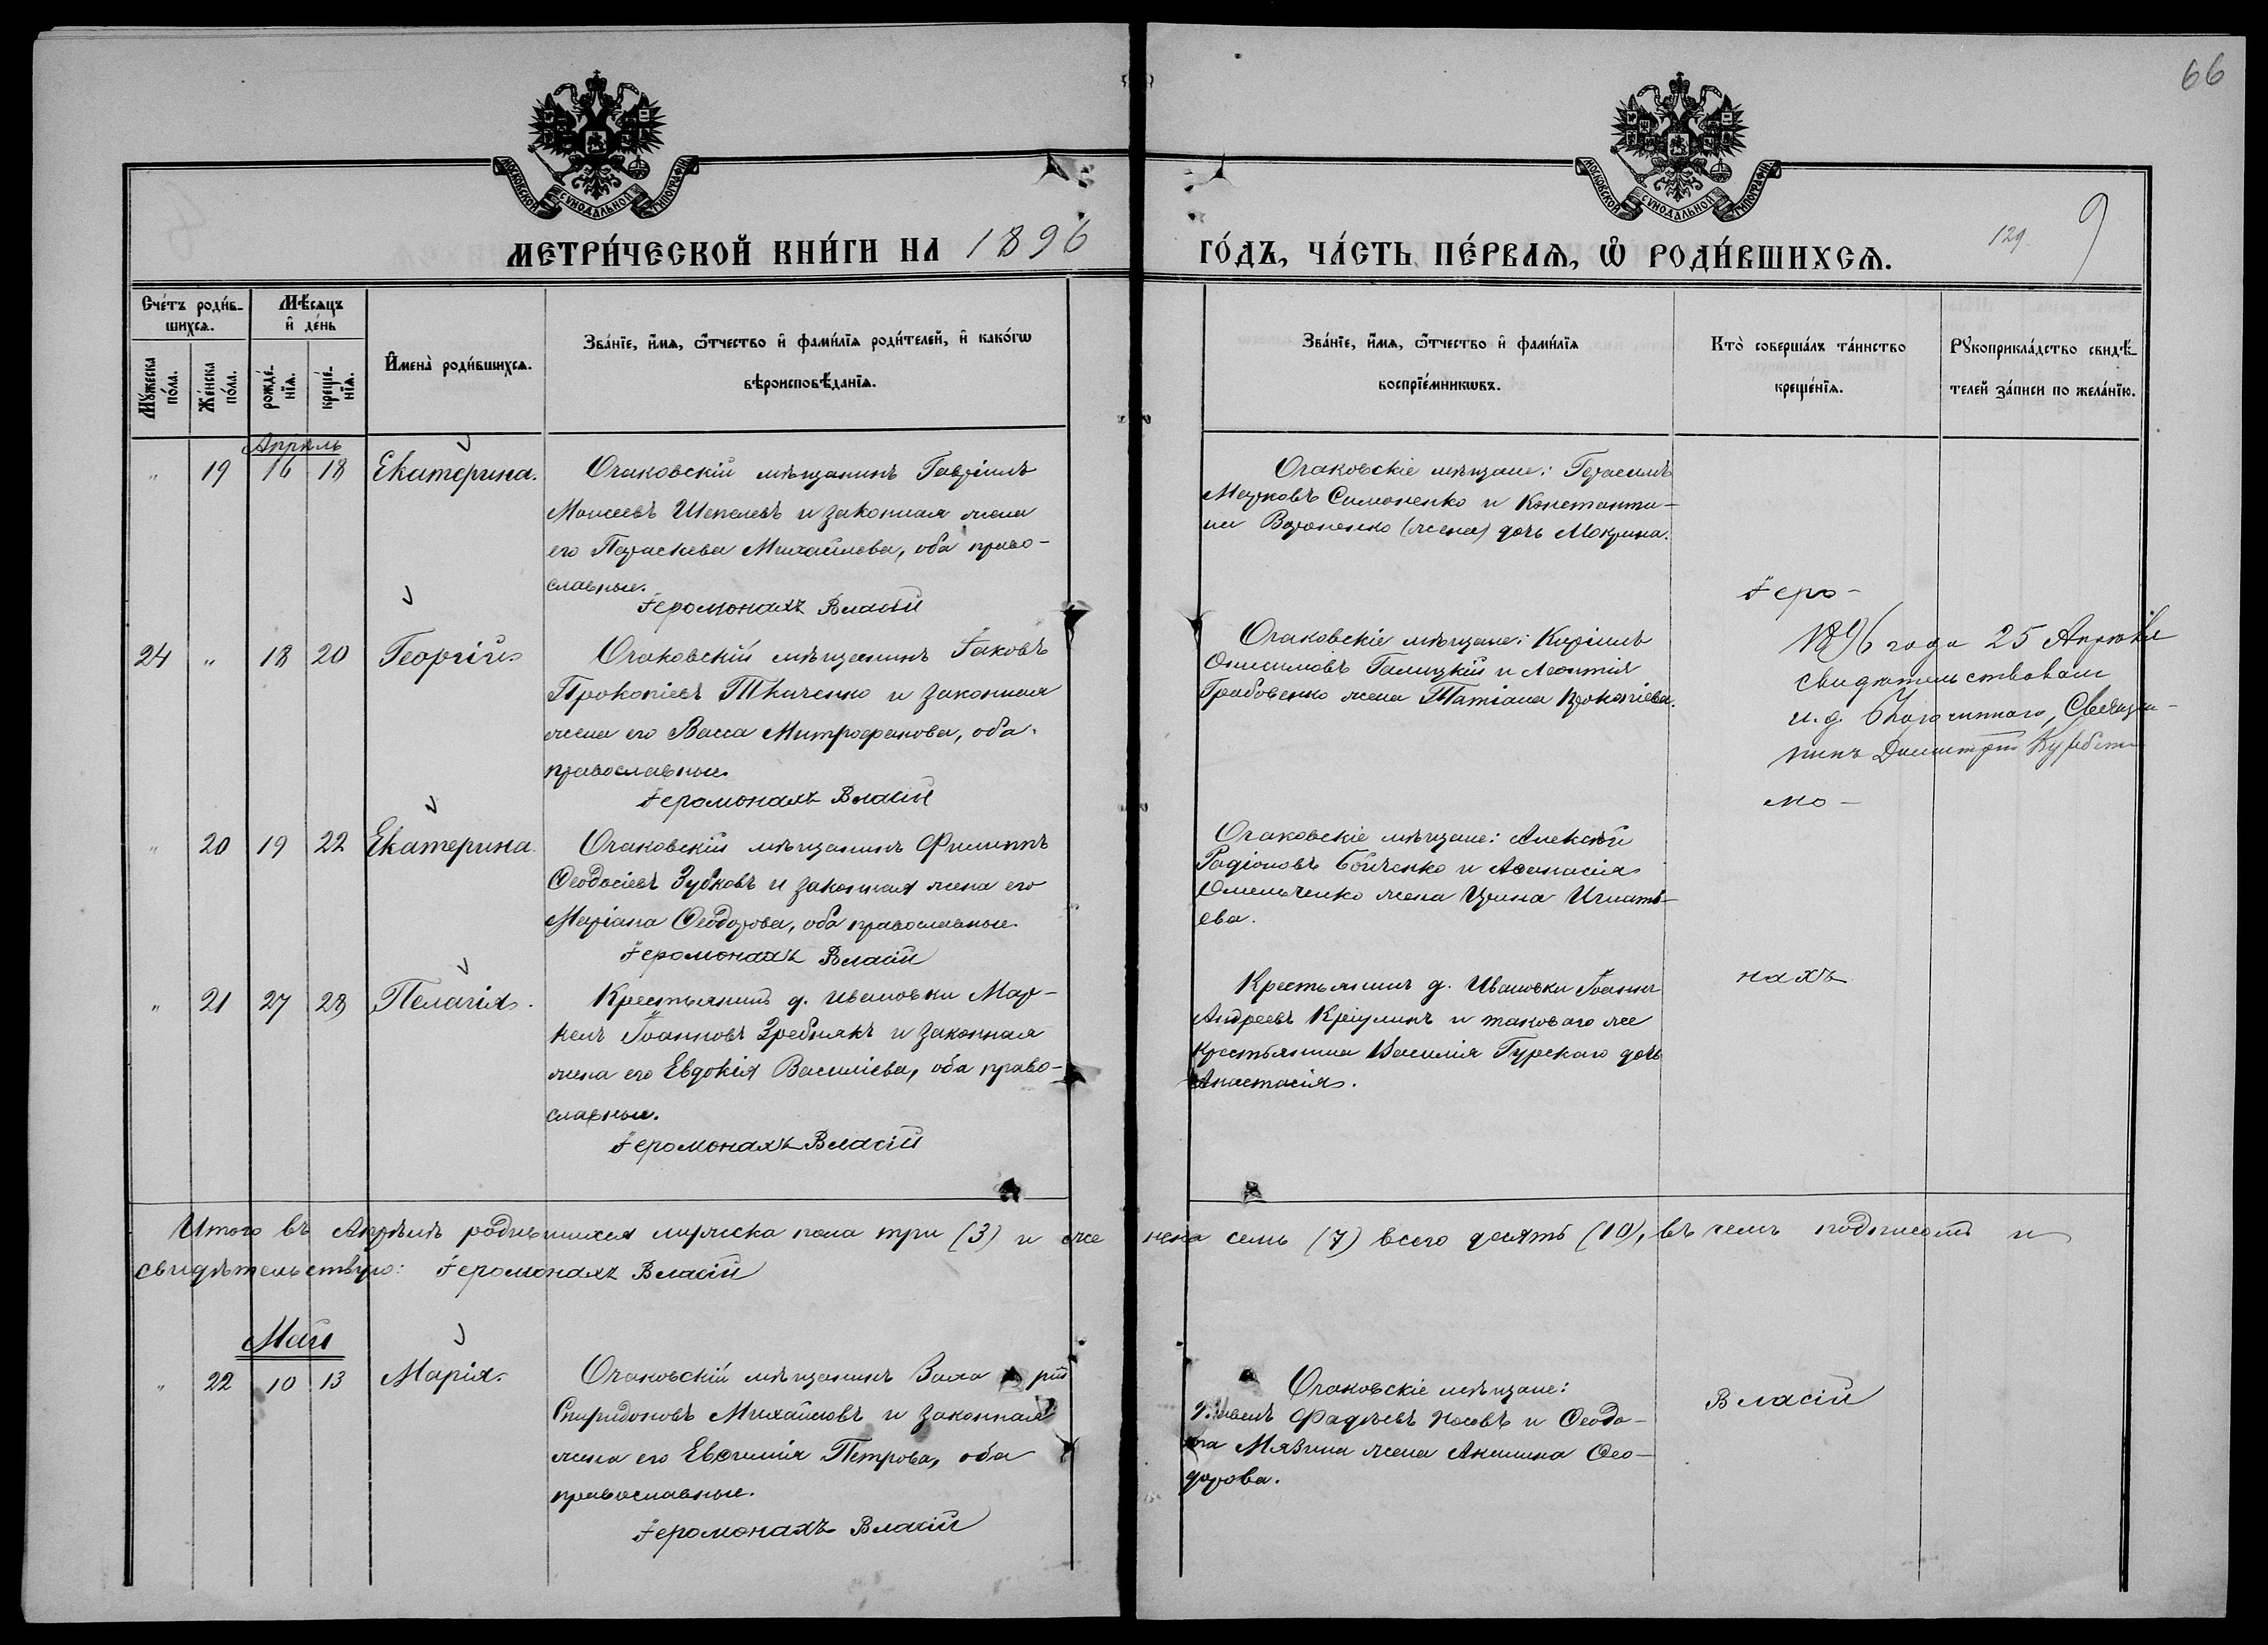 66
МОСКОВСКОЙ СѴНОДАЛЬНОЙ ТИПОГРАФІИ
МОСКОВСКОЙ СѴНОДАЛЬНОЙ ТИПОГРАФІИ
МЕТРИ́ЧЕСКОЙ КНИ́ГИ НА 1896
ГО́ДЪ, ЧА́СТЬ ПЕ́РВАѦ, Ѽ РОДИ́ВШИХСѦ.
129
9
Сче́тъ роди́в-
шихсѧ.
Мѣ́сѧцъ
и҆ де́нь
Мꙋ́жеска по́ла.
Же́нска по́ла.
рожде́-нїѧ.
креще́-нїѧ.
И҆мена̀ роди́вшихсѧ.
Зва́нїе, и҆́мѧ, ѻ҆́тчество и҆ фами́лїѧ роди́телей, и҆ како́гѡ
вѣроисповѣ́данїѧ.
Зва́нїе, и҆́мѧ, ѻ҆́тчество и҆ фами́лїѧ
воспрїе́мникѡвъ.
Кто̀ соверша́лъ та́инство
креще́нїѧ.
Рꙋкоприкла́дство свидѣ́-
телей за́писи по жела́нїю.
Апрѣль
" 19 16 18 Екатерина.
Очаковскій мѣщанинъ Гавріилъ
Моисеевъ Шепелевъ и законная жена
его Параскева Михайлова, оба право-
славные.
Іеромонахъ Власій
Очаковскіе мѣщане: Герасимъ
Марковъ Симоненко и Константи-
на Вороненко (жена) дочь Мокрина.
Іеро-
24 " 18 20 Георгій
Очаковскій мѣщанинъ Іаковъ
Прокопіевъ Ткаченко и законная
жена его Васса Митрофанова, оба
православные.
Іеромонахъ Власій
Очаковскіе мѣщане: Кирилъ
Онисимовъ Галицкій и Леонтія
Грабовенко жена Татіана Прокопіева.
1896 года 25 Апрѣля
свидѣтельствовалъ
и. д. Благочиннаго, Священ-
никъ Димитрій
мо-
" 20 19 22 Екатерина.
Очаковскій мѣщанинъ Филиппъ
Ѳеодосіевъ Зубковъ и законная жена его
Маріана Ѳеодорова, оба православные.
Іеромонахъ Власій
Очаковскіе мѣщане: Алексѣй
Радіоновъ Бойченко и Аѳанасія
Омельченко жена Ирина Игнать-
ева.
" 21 27 28 Пелагія.
Крестьянинъ д. Ивановки Мар-
келъ Іоанновъ Гребнякъ и законная
жена его Евдокія Василіева, оба право-
славные.
Іеромонахъ Власій
Крестьянинъ д. Ивановки Іоаннъ
Андреевъ Кріулинъ и таковаго же
крестьянина Василія Гурскаго дочь
Анастасія.
нахъ
Итого въ Апрѣлѣ родившихся мужеска пола три (3) и женска семь (7) всего десять (10), въ чемъ подписомъ и
свидѣтельствую: Іеромонахъ Власій
Май
" 22 10 13 Марія.
Очаковскій мѣщанинъ Захарій
Спиридоновъ Михайловъ и законная
жена его Евѳимія Петрова, оба
православные.
Іеромонахъ Власій
Очаковскіе мѣщане:
Фадѣевъ Носовъ и Ѳеодо-
та Мязина жена Акилина Ѳео-
дорова.
Власій